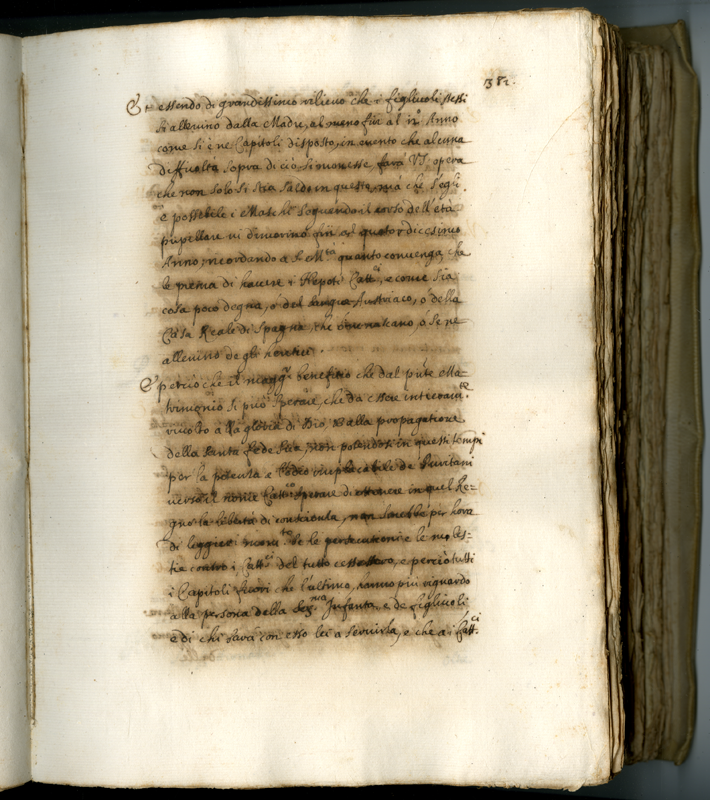 381.
Et essendo di grandissimo rilievo che i figliuoli stessi
si allevino dalla Madre, al meno fin al xii.º Anno
come si è ne Capitoli disposto, in evento che alcuna
difficoltà sopra di ciò si movesse, farà VS. opera
che non solo si stia saldo in questo, mà che s'egli
è possibile i Maschi seguendo il corso dell'età
pupillare vi dimorino fin al quatordicesimo
Anno, ricordando a S. M.tà quanto convenga che
le prema di havere i Nepoti Catt.ci, e come sia
cosa poco degna, ò del sangue Austriaco, ò della
Casa Reale di Spagna, che ò ne nascano, ò se ne
allevino degli heretici.
E perciò che il magg.r benefitio che dal pnte Ma=
trimonio si può sperare, che da esser interam.te
rivolto alla gloria di Dio, et alla propagatione
della Santa fede sua, non potendosi in questi tempi
per la potenza e l'odio implacabile de Puritani
verso il nome Catt.co sperare di ottenere in quel Re=
gno la libertà di conscienza, non sarebbe per hora
di leggieri mom.to se le persecutioni e le moles=
tie contro i Catt.ci del tutto cessassero, e perciò tutti
i Capitoli fuori che l'ultimo, hanno più riguardo
alla persona della Ser.ma Infanta, e de figliuoli
e di chi sarà con esso lei a servirla, e che a i Catt.ci